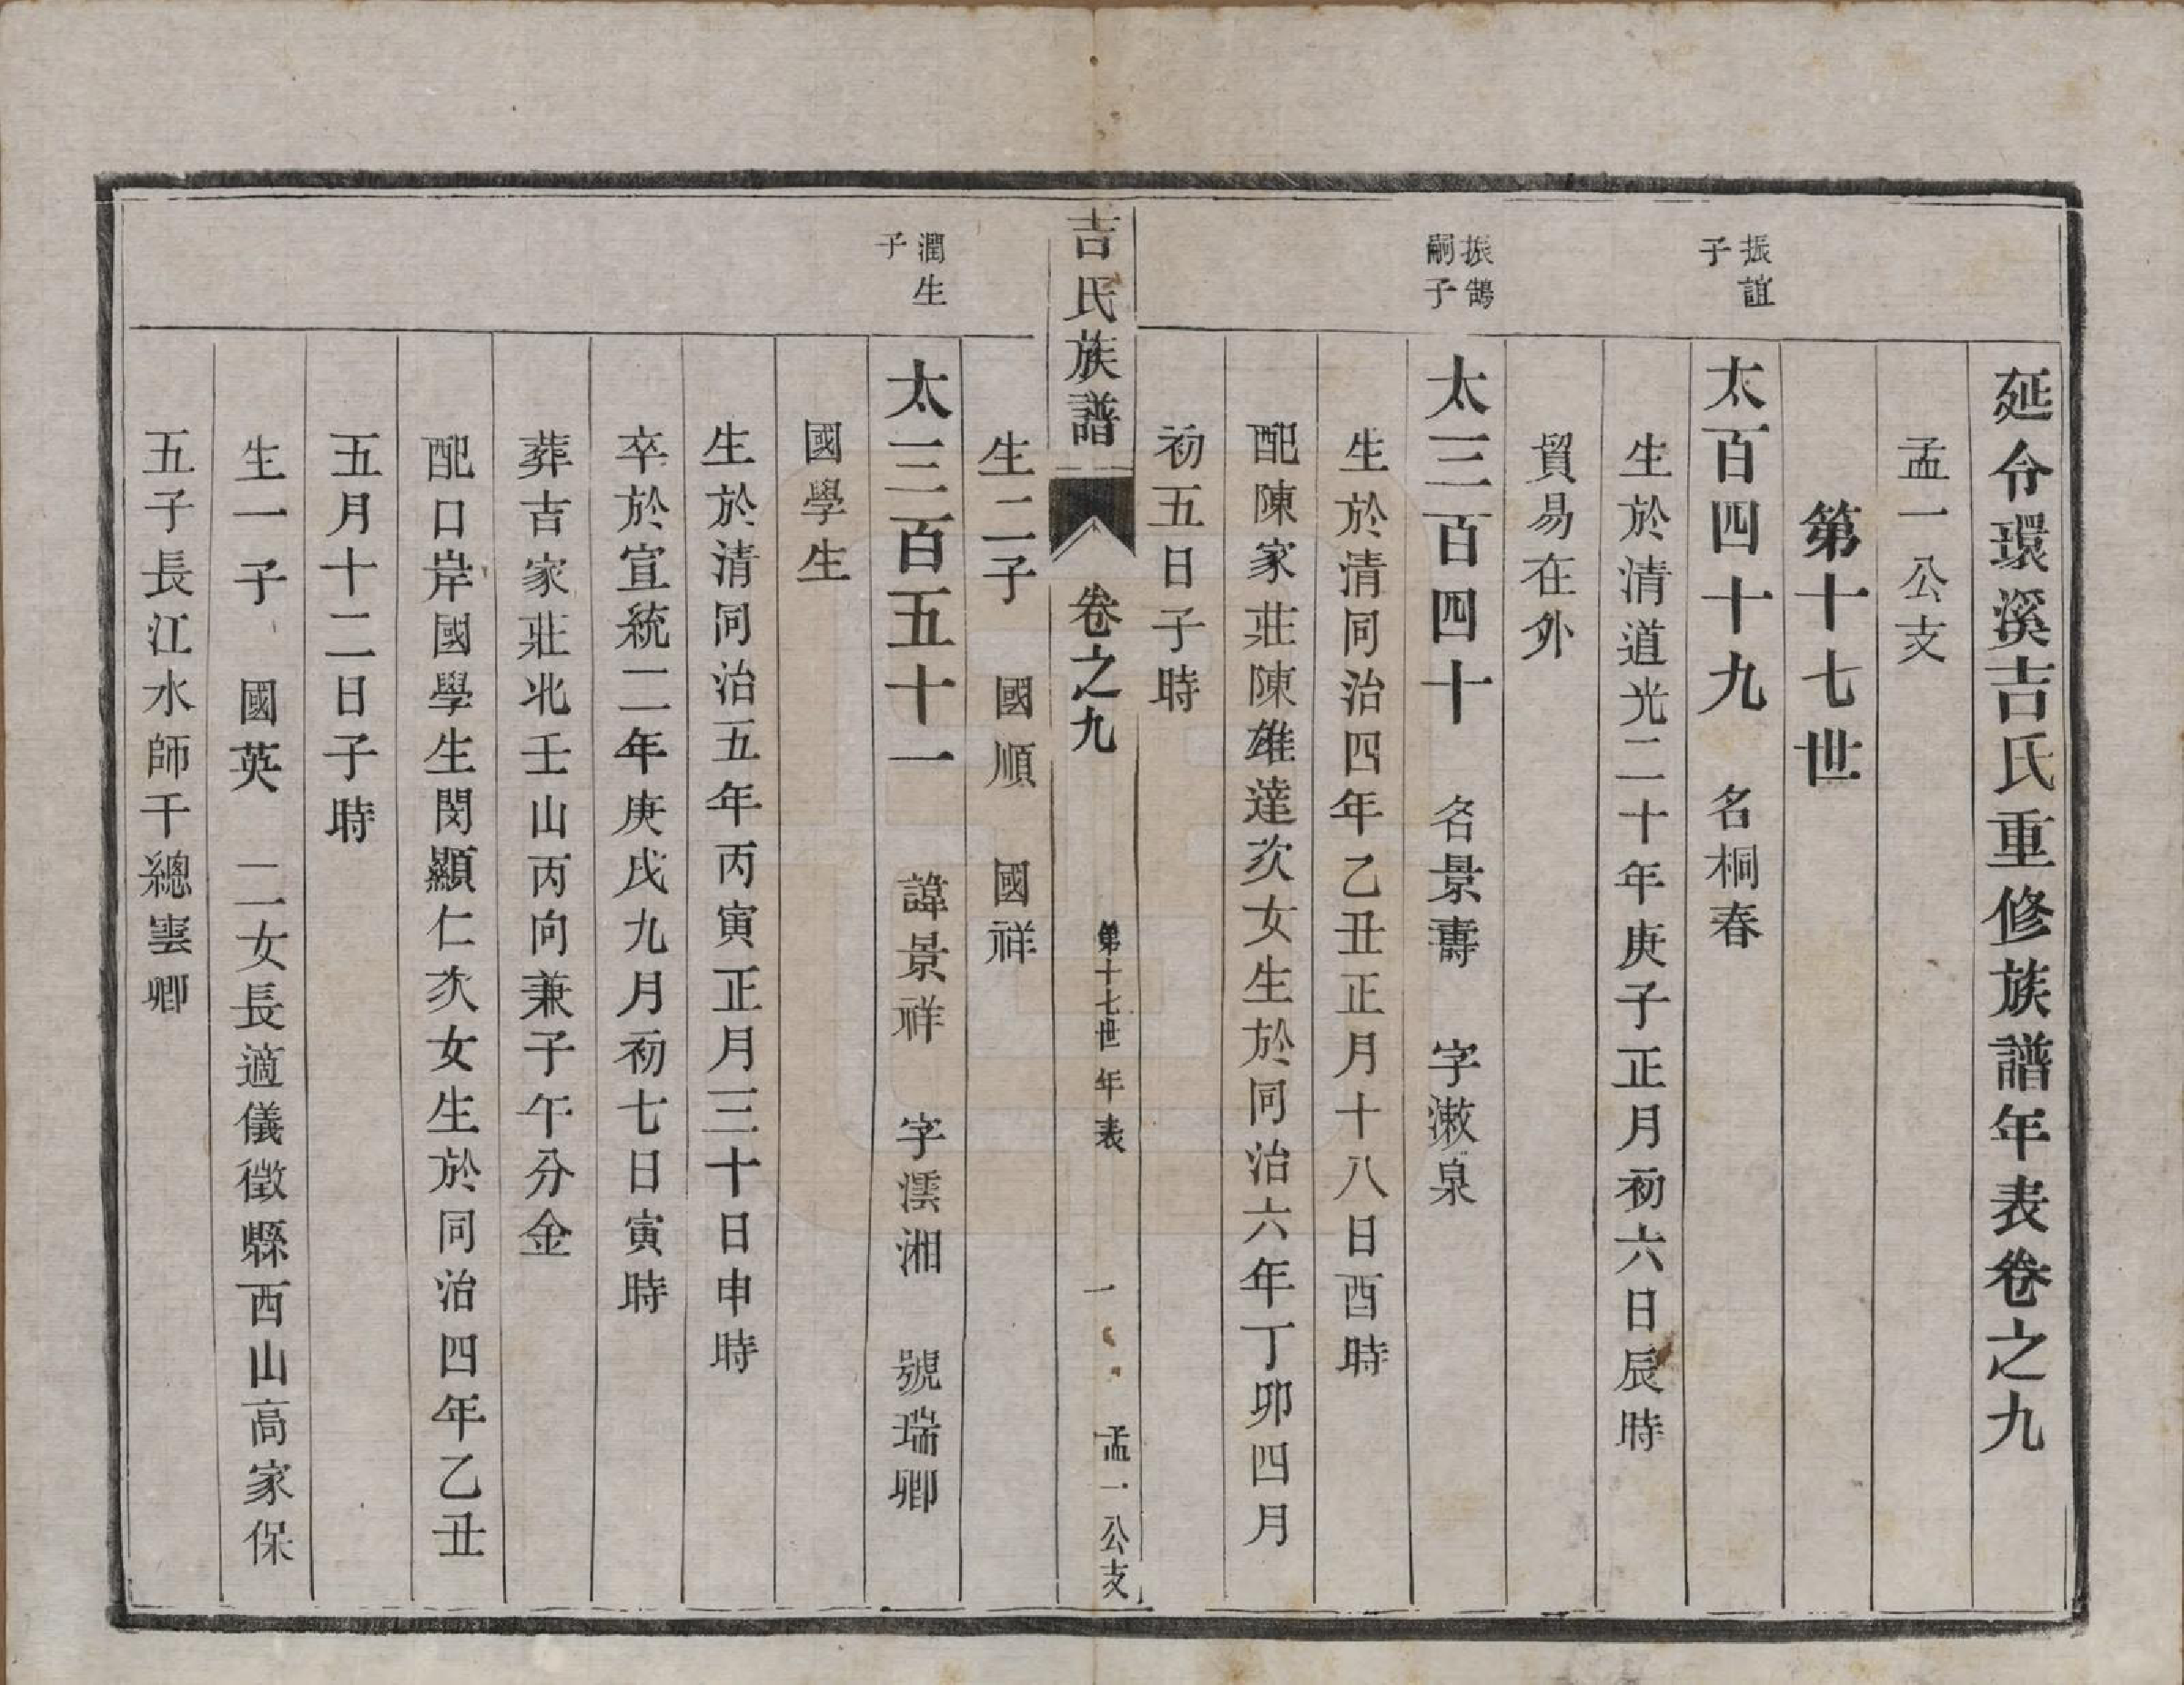 延令環溪吉氏重修族譜年表卷之九
孟一公支
第十七世
振誼
子
太百四十九　名桐春
生於清道光二十年庚子正月初六日辰時
貿易在外
振鵠
嗣子
太三百四十　名景壽　字漱泉
生於清同治四年乙丑正月十八日酉時
配陳家莊陳雄達次女生於同治六年丁卯四月
初五日子時
吉氏族譜　卷之九　第十七世年表　一　孟一公支
生二子　國順　國祥
潤生
子
太三百五十一　諱景祥　字澐湘　號瑞卿
國學生
生於清同治五年丙寅正月三十日申時
卒於宣統二年庚戌九月初七日寅時
葬吉家莊北壬山丙向兼子午分金
配口岸國學生閔顯仁次女生於同治四年乙丑
五月十二日子時
生一子　國英　二女長適儀徵縣西山高家保
五子長江水師千總雲卿